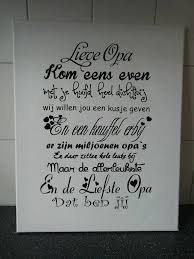 Lieve Opa
Kom eens even
met je hoofd heel dichtbij
wij willen jou een kusje geven
En een knuffel erbij
er zijn miljoenen opa's
En daar zitten hele leuke bij
Maar de allerleukste
En de Liefste Opa
Dat ben JIJ